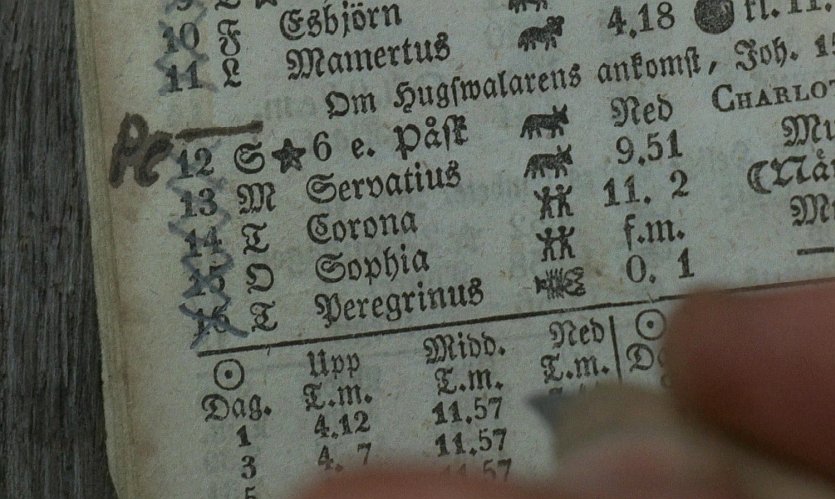 10 F Esbjörn 4.18 kl. 11.
11 L Mamertus
Om Hugswalarens ankomst, Joh. 15
Ned CHARLOT
Pe
12 S 6 e. Påsk 9.51 Mu
13 M Servatius 11. 2 (Nä
14 T Corona f.m. M
15 O Sophia 0. 1
16 T Peregrinus
Upp Midd. Ned
Dag. T.m. T.m. T.m. Da
1 4.12 11.57
3 4. 7 11.57
5 11.57